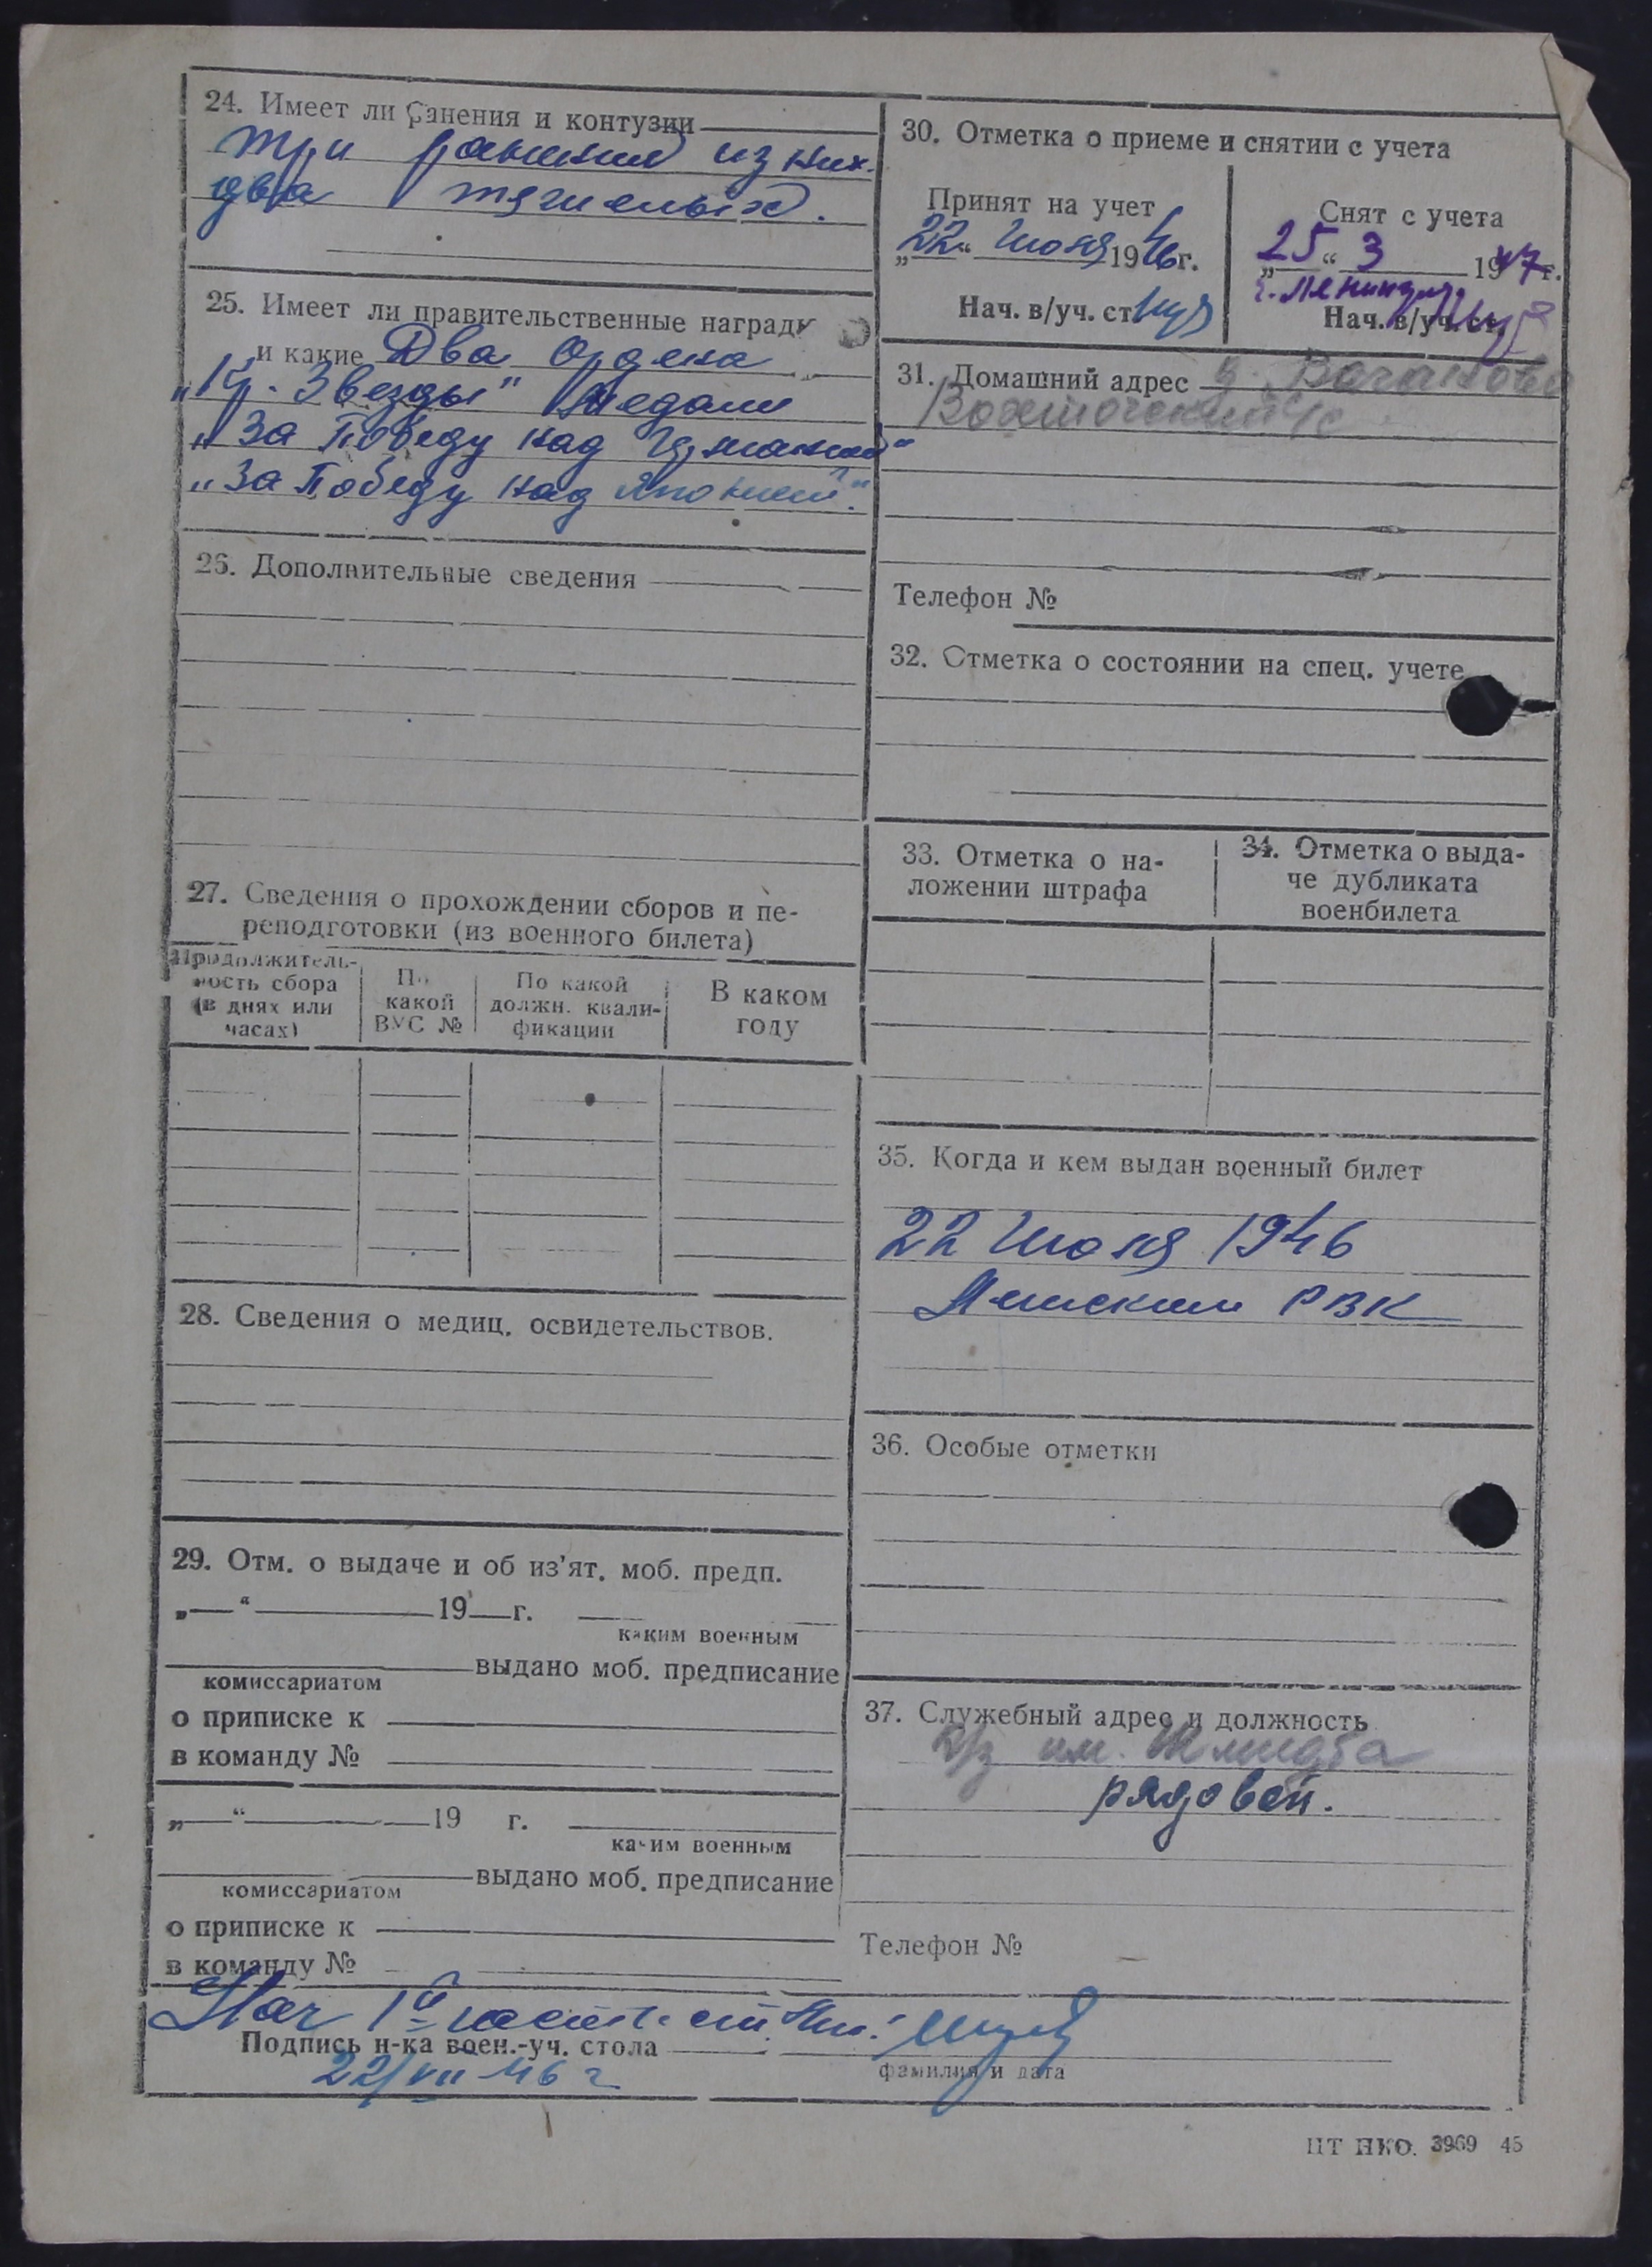 24. Имеет ли ранения и контузии
три ранения из них
два тяжелых.
25. Имеет ли правительственные награды
и какие Два Ордена
„Кр. Звезды" Медали
„За Победу над Германией"
„За Победу над Японией".
26. Дополнительные сведения
27. Сведения о прохождении сборов и пе-
реподготовки (из военного билета)
Продолжитель-
ность сбора
(в днях или
часах)
По
какой
ВУС №
По какой
должн. квали-
фикации
В каком
году
28. Сведения о медиц. освидетельствов.
29. Отм. о выдаче и об из'ят. моб. предп.
„ “ 19 г.
каким военным
выдано моб. предписание
комиссариатом
о приписке к
в команду №
„ “ 19 г.
каким военным
выдано моб. предписание
комиссариатом
о приписке к
в команду №
30. Отметка о приеме и снятии с учета
Принят на учет
„22“ Июня 1946г.
Нач. в/уч. ст.
Снят с учета
„25“ 3 1947г.
г. Ленинград
Нач. в/уч. ст.
31. Домашний адрес д. Ваганово
с/с
Телефон №
32. Отметка о состоянии на спец. учете
33. Отметка о на-
ложении штрафа
34. Отметка о выда-
че дубликата
военбилета
35. Когда и кем выдан военный билет
22 Июня 1946
РВК
36. Особые отметки
37. Служебный адрес и должность
к/з им. Шмидта
рядовой.
Телефон №
Нач 1й части ст.
Подпись н-ка воен.-уч. стола
фамилия и дата
22/VII 46 г
ЦТ НКО. 3969 45